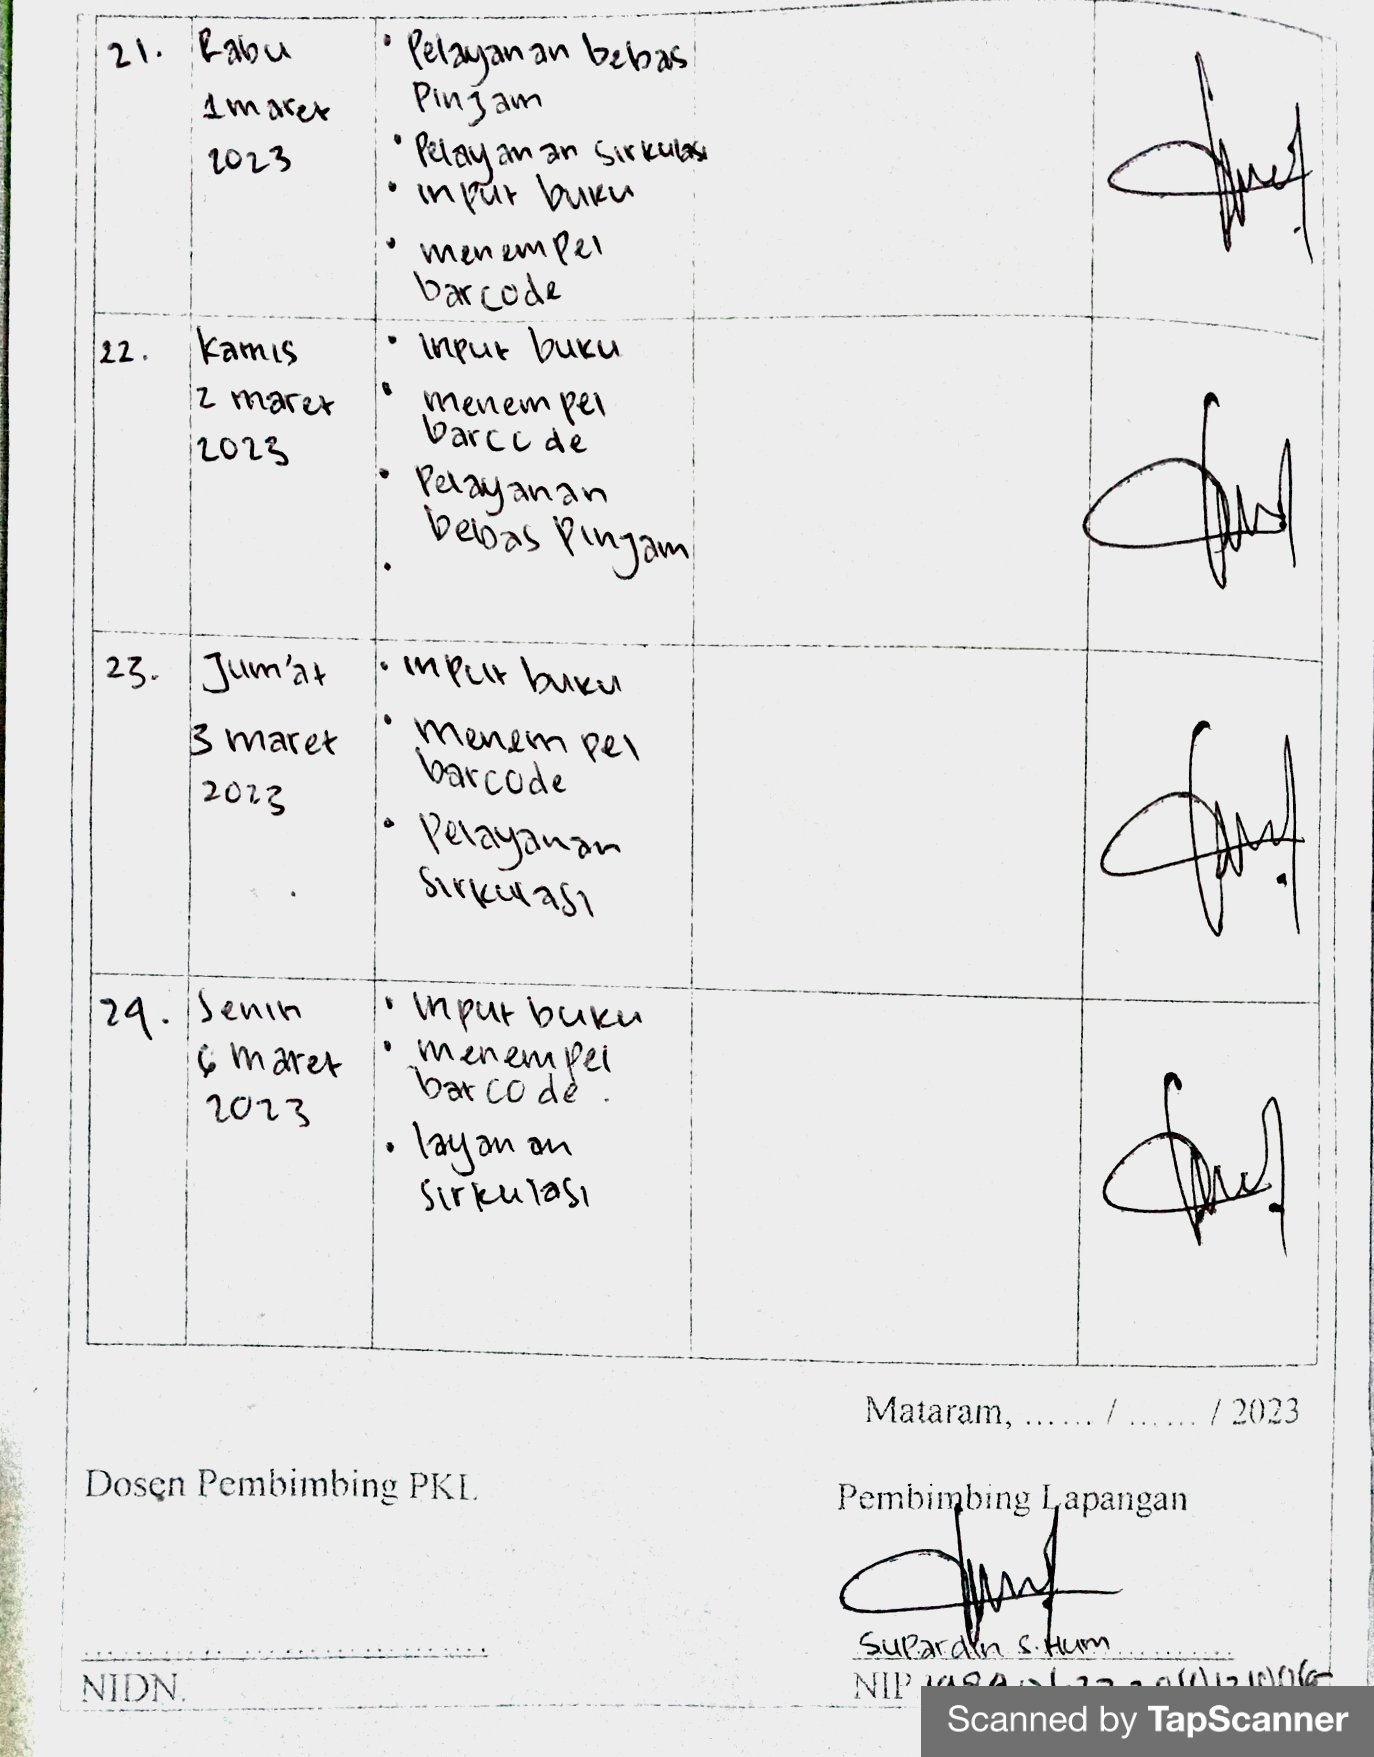 21. Rabu
1 maret
2023
• Pelayanan bebas
Pinjam
• Pelayanan sirkulasi
• input buku
• menempel
barcode
22. kamis
2 maret
2023
• input buku
• menempel
barcode
• Pelayanan
bebas Pinjam
•
23. Jum'at
3 maret
2023
• input buku
• menempel
barcode
• Pelayanan
sirkulasi
24. Senin
6 maret
2023
• input buku
• menempel
barcode.
• layanan
sirkulasi
Mataram, ...... / ...... / 2023
Dosen Pembimbing PKL
Pembimbing Lapangan
Supardin S.Hum
NIDN.
NIP
Scanned by TapScanner